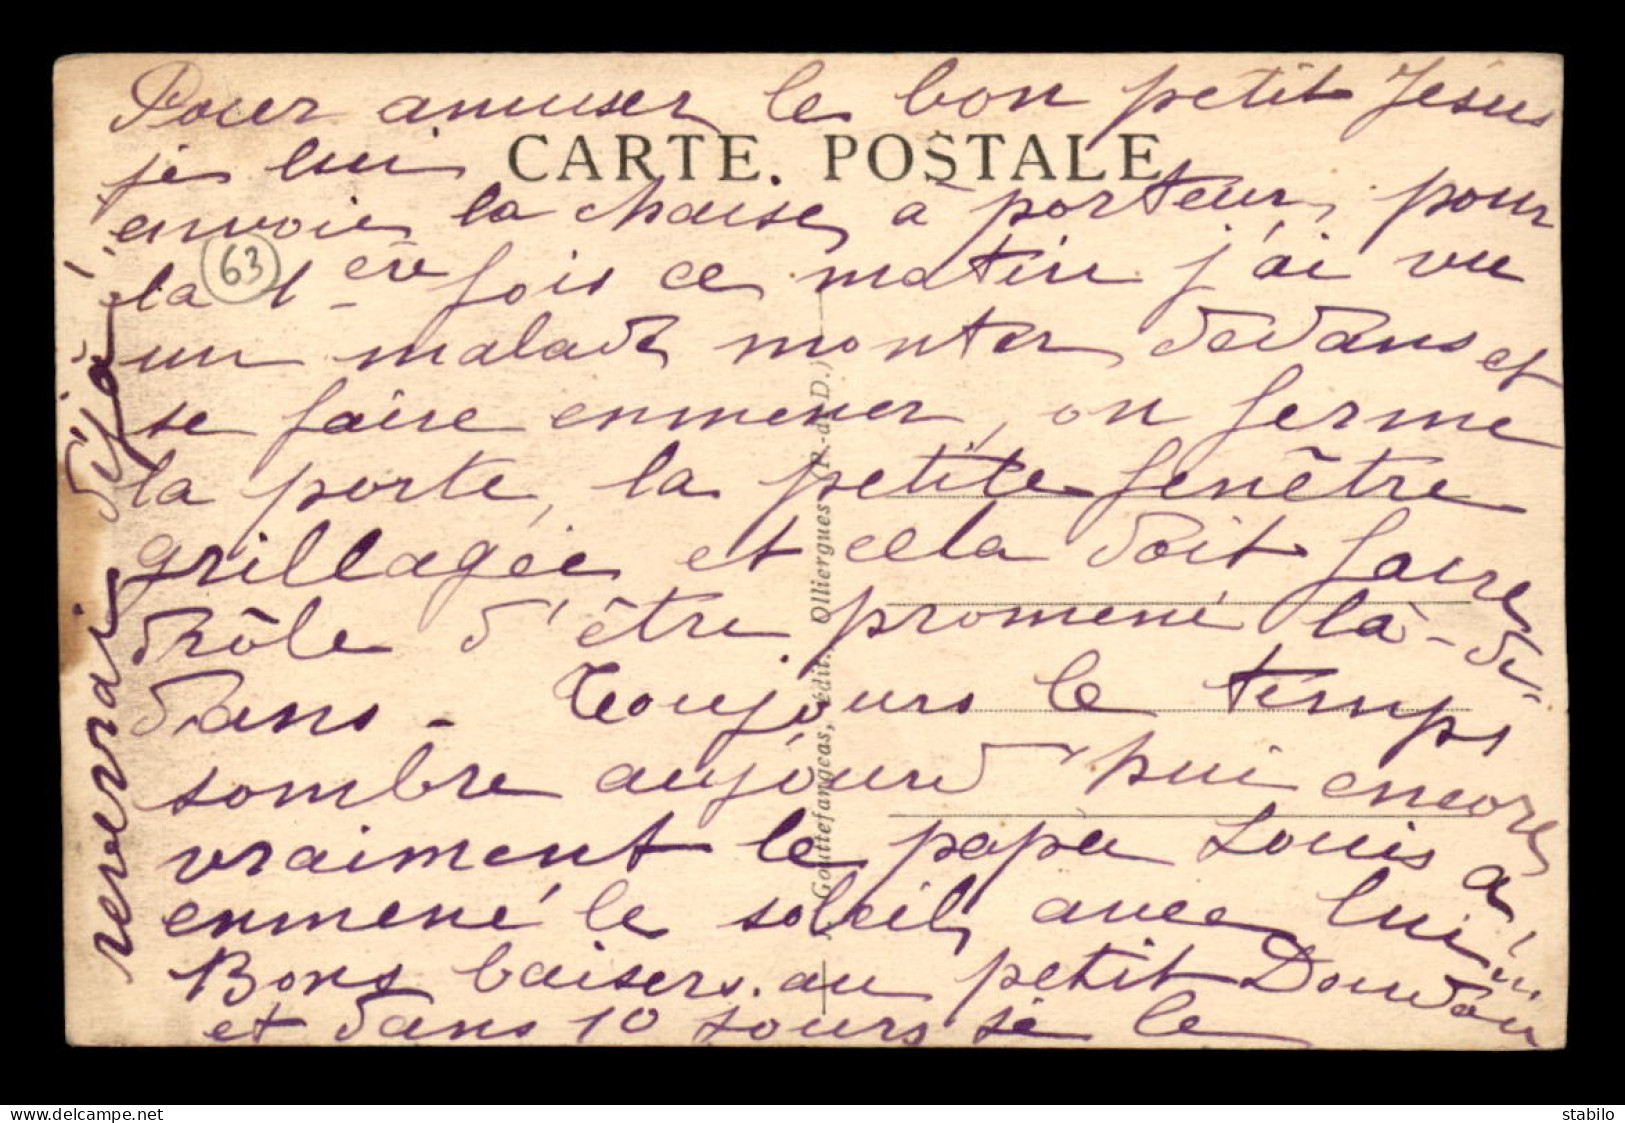 Pour amuser le bon petit Jésus
je lui
CARTE POSTALE
envoie la chaise à porteur, pour
la 1ère fois ce matin j'ai vu
63
un malade monter dedans et
se faire emmener, on ferme
la porte, la petite fenêtre
grillagée et cela doit faire
drôle d'être promené là-de-
dans - Toujours le temps
sombre aujourd'hui encore
vraiment le papa Louis a
emmené le soleil avec lui!...
Bons baisers au petit Doudou
et dans 10 jours je le
reverrai déjà!...
Gouttefangeas, édit., Olliergues (P.-de-D.)
delcampe.net
stabilo